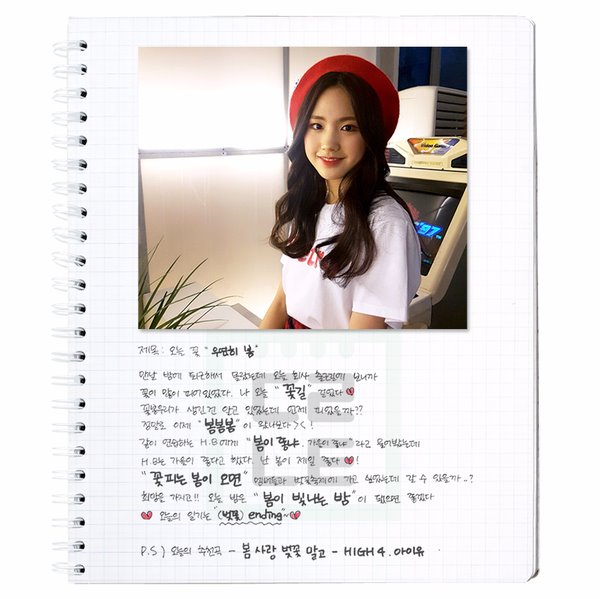 Video Game
'97
제목: 오늘 꽃 "우연히 봄"
맨날 밤에 퇴근해서 몰랐는데 오늘 회사 출근길에 보니까
꽃이 많이 피어있었다. 나 오늘 "꽃길" 걸었다
꽃봉우리가 생긴건 알고 있었는데 언제 피었을까??
정말로 이제 "봄봄봄"이 왔나보다><!
같이 연습하는 H.B에게 "봄이 좋냐, 가을이 좋냐" 라고 물어봤는데
H.B는 가을이 좋다고 했다. 난 봄이 제일 좋다!
"꽃피는 봄이 오면" 멤버들과 벚꽃축제에 가고 싶었는데 갈 수 있을까..?
희망을 가지고!! 오늘 밤은 "봄이 빛나는 밤"이 됐으면 좋겠다
오늘의 일기는 "(벚꽃) ending"~
P.S) 오늘의 추천곡 - 봄 사랑 벚꽃 말고 - HIGH4. 아이유